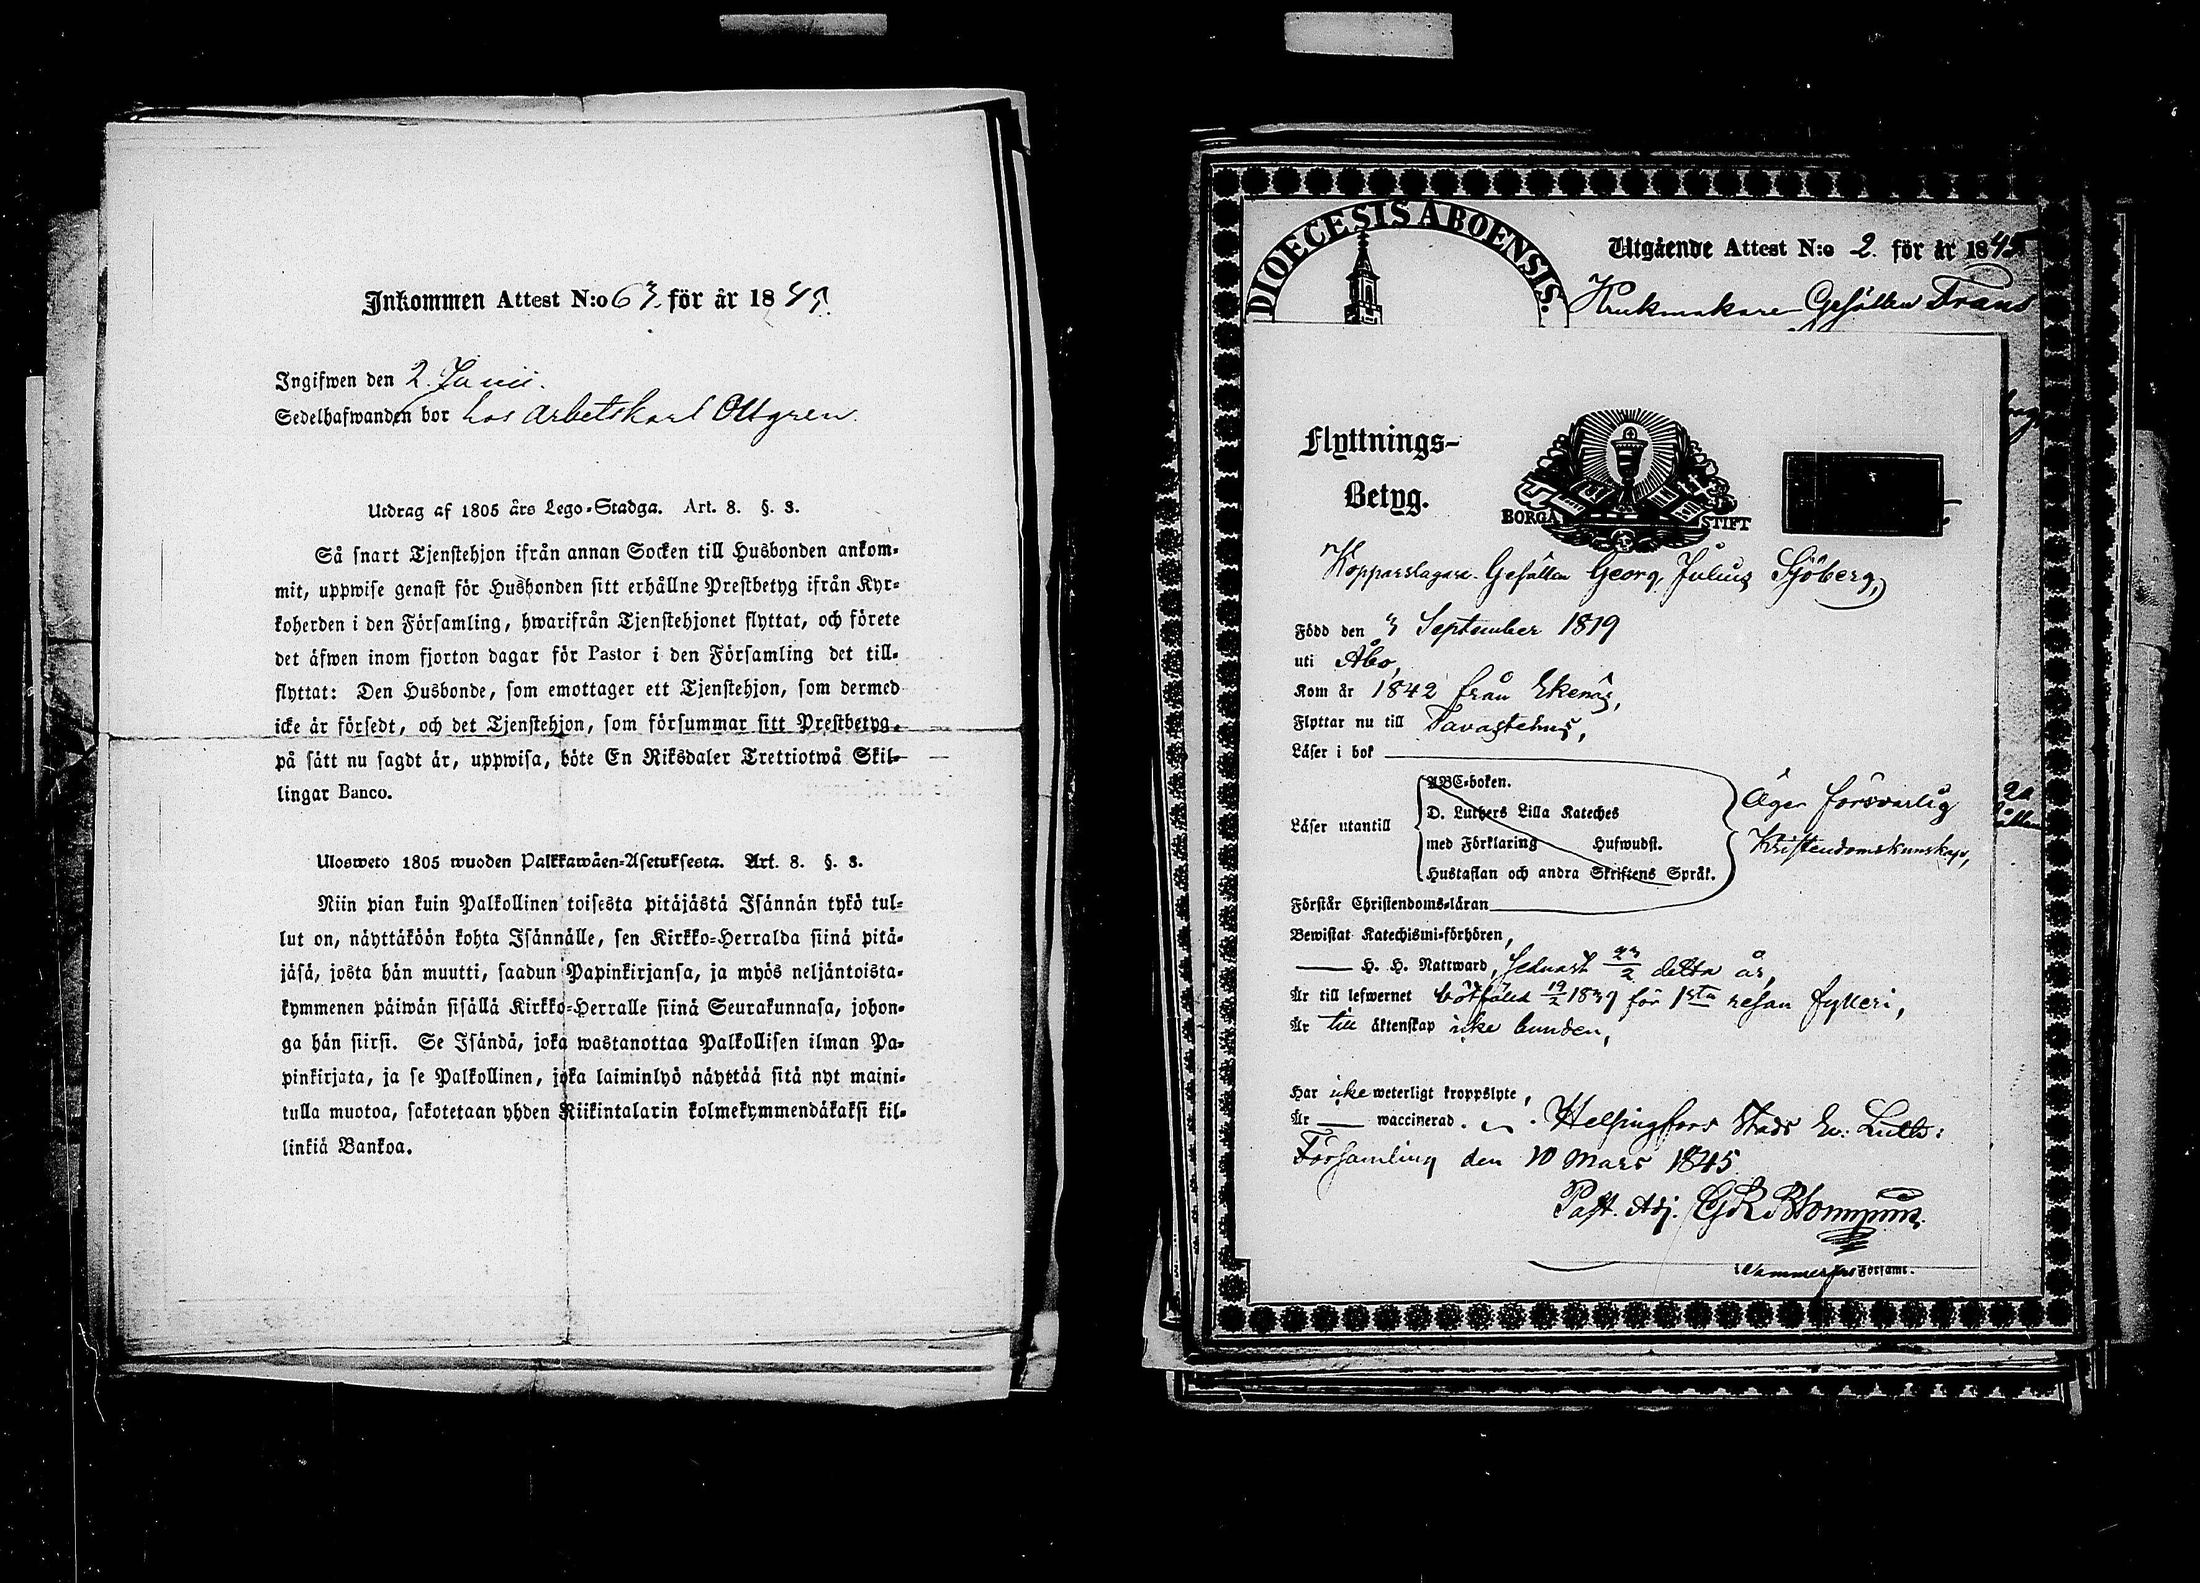 Inkommen Attest N:o 63. för år 1845.
Ingifwen den 2. Junii.
Sedelhafwanden bor hos Arbetskarl Ottgren.
Utdrag af 1805 års Lego-Stadga. Art. 8. §. 3.
Så snart Tjenstehjon ifrån annan Socken till Husbonden ankom-
mit, uppwise genast för Husbonden sitt erhållne Prestbetyg ifrån Kyr-
koherden i den Församling, hwarifrån Tjenstehjonet flyttat, och förete
det äfwen inom fjorton dagar för Pastor i den Församling det till-
flyttat: Den Husbonde, som emottager ett Tjenstehjon, som dermed
icke är försedt, och det Tjenstehjon, som försummar sitt Prestbetyg,
på sätt nu sagdt är, uppwisa, böte En Riksdaler Trettiotwå Skil-
lingar Banco.
Ulosweto 1805 wuoden Palkkawäen-Asetuksesta. Art. 8. §. 3.
Niin pian kuin Palkollinen toisesta pitäjästä Isännän tykö tul-
lut on, näyttäköön kohta Isännälle, sen Kirkko-Herralda siinä pitä-
jäsä, josta hän muutti, saadun Papinkirjansa, ja myös neljäntoista-
kymmenen päiwän sisällä Kirkko-Herralle siinä Seurakunnasa, johon-
ga hän siirsi. Se Isändä, joka wastanottaa Palkollisen ilman Pa-
pinkirjata, ja se Palkollinen, joka laiminlyö näyttää sitä nyt maini-
tulla muotoa, sakotetaan yhden Riikintalarin kolmekymmendäkaksi kil-
linkiä Bankoa.
DIOECESIS ABOENSIS.
Utgående Attest N:o 2. för år 1845
Krukmakare Gesällen Frans
Flyttnings-
Betyg.
BORGÅ STIFT
Kopparslagare Gesällen Georg Julius Sjöberg,
Född den 3 September 1819
uti Åbo,
Kom år 1842 från Ekenäs,
Flyttar nu till Tavastehus,
Läser i bok
Läser utantill
ABC-boken.
D. Luthers Lilla Kateches
med Förklaring Hufwudst.
Hustaflan och andra Skriftens Språk.
Äger försvarlig
Kristendomskunskap,
Förstår Christendoms-läran
Bewistat Katechismi-förhören,
H. H. Nattward, senast 23/2 detta år,
Är till lefwernet bötfäld 19/2 1839 för 1sta resan fylleri,
Är till äktenskap icke bunden,
Har icke weterligt kroppslyte,
Är waccinerad. Helsingfors Stads Ev: Luth:
Församling den 10 Mars 1845
Past. Adj.
Församl.